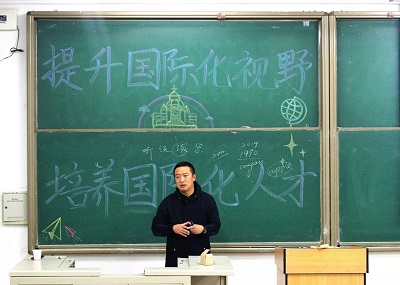 提升国际化视野
2019
1980
培养国际化人才